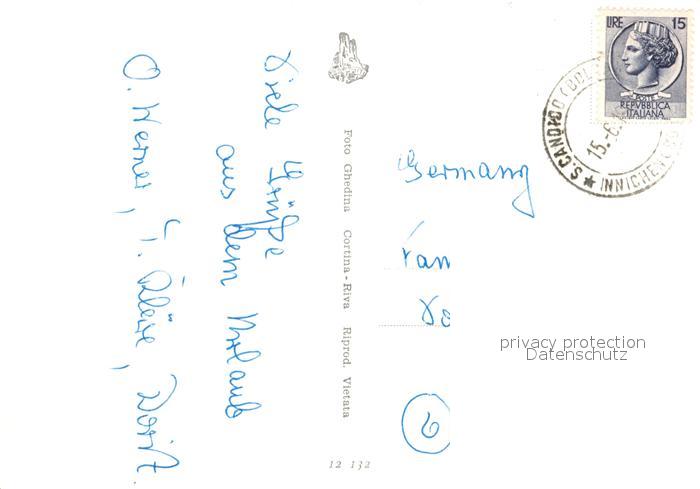 Viele Grüße
aus dem Urlaub
O. Werner, T. Kläre, Dorit.
Foto Ghedina Cortina - Riva Riprod. Vietata
12 132
LIRE 15
POSTE
REPVBBLICA
ITALIANA
S. CANDIDO (BOL
INNICHEN (BO
15.-6.
Germany
Fam
privacy protection
Datenschutz